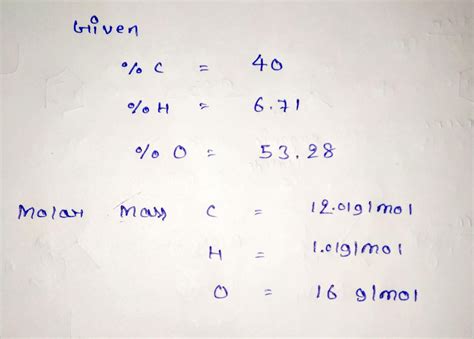 Given
% C = 40
% H = 6.71
% O = 53.28
Molar Mass C = 12.01g/mol
H = 1.01g/mol
O = 16 g/mol